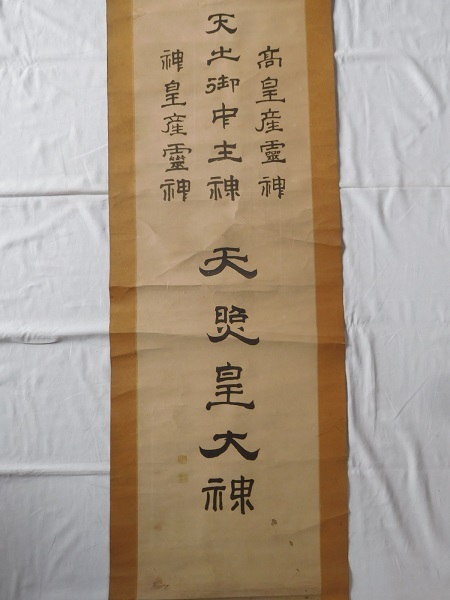 高皇産靈神
天之御中主神
神皇産靈神
天照皇大神